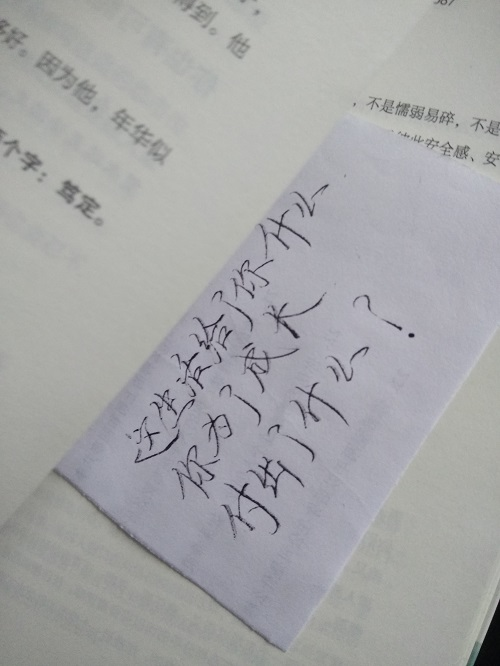 得到。他
好。因为他，年华似
个字：笃定。
，不是懦弱易碎，不是
此安全感、安
这生活给了你什么
你为了成长
付出了什么？